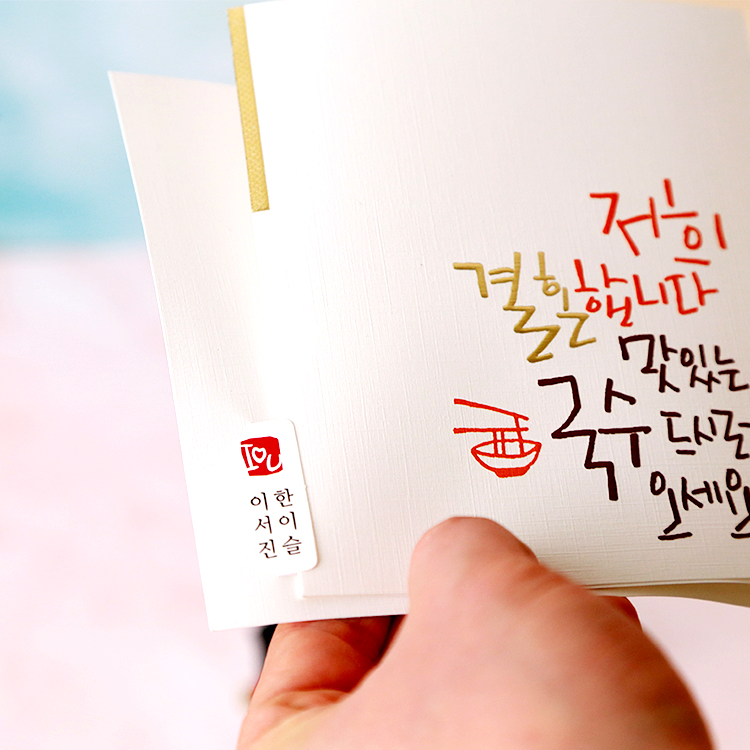 저희
결혼합니다
맛있는
국수 드시러
오세요
I♡U
이서진
한이슬